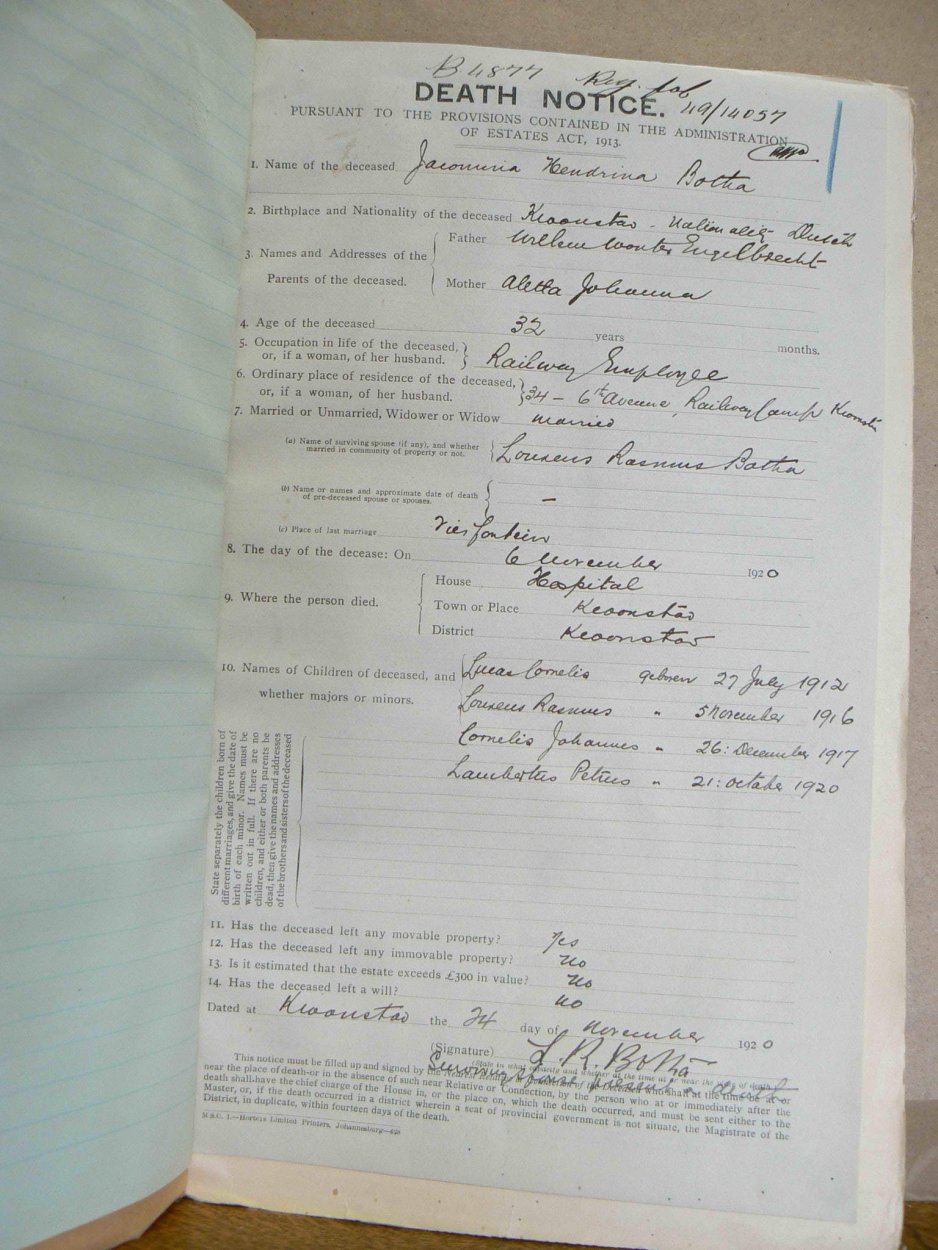 B 4877 Reg. fob
DEATH NOTICE. 49/14057
PURSUANT TO THE PROVISIONS CONTAINED IN THE ADMINISTRATION
OF ESTATES ACT, 1913.
1. Name of the deceased Jacomina Hendrina Botha
2. Birthplace and Nationality of the deceased Kroonstad - Nationality Dutch
3. Names and Addresses of the Parents of the deceased.
Father Willem Wouter Engelbrecht
Mother Aletta Johanna
4. Age of the deceased 32 years months.
5. Occupation in life of the deceased, or, if a woman, of her husband. Railway Employee
6. Ordinary place of residence of the deceased, or, if a woman, of her husband. 34 - 6th Avenue, Railway Camp Kroonstad
7. Married or Unmarried, Widower or Widow married
(a) Name of surviving spouse (if any), and whether married in community of property or not. Lourens Rasmus Botha
(b) Name or names and approximate date of death of pre-deceased spouse or spouses. —
(c) Place of last marriage Vierfontein
8. The day of the decease: On 6 November 1920
9. Where the person died.
House Hospital
Town or Place Kroonstad
District Kroonstad
10. Names of Children of deceased, and whether majors or minors.
Lucas Cornelis geboren 27 July 1912
Lourens Rasmus " 5 November 1916
Cornelis Johannes " 26: December 1917
Lambertus Petrus " 21: October 1920
State separately the children born of
different marriages, and give the date of
birth of each minor. Names must be
written out in full. If there are no
children, and either or both parents be
dead, then give the names and addresses
of the brothers and sisters of the deceased
11. Has the deceased left any movable property? Yes
12. Has the deceased left any immovable property? No
13. Is it estimated that the estate exceeds £300 in value? No
14. Has the deceased left a will? no
Dated at Kroonstad the 24 day of November 1920
(Signature) L R Botha
Surviving Spouse present at death
This notice must be filled up and signed by the nearest
near the place of death—or in the absence of such near Relative or Connection, by the person who at or immediately after the
death shall have the chief charge of the House in, or the place on, which the death occurred, and must be sent either to the
Master, or, if the death occurred in a district wherein a seat of provincial government is not situate, the Magistrate of the
District, in duplicate, within fourteen days of the death.
M.S.C. 1.—Hortors Limited Printers, Johannesburg—